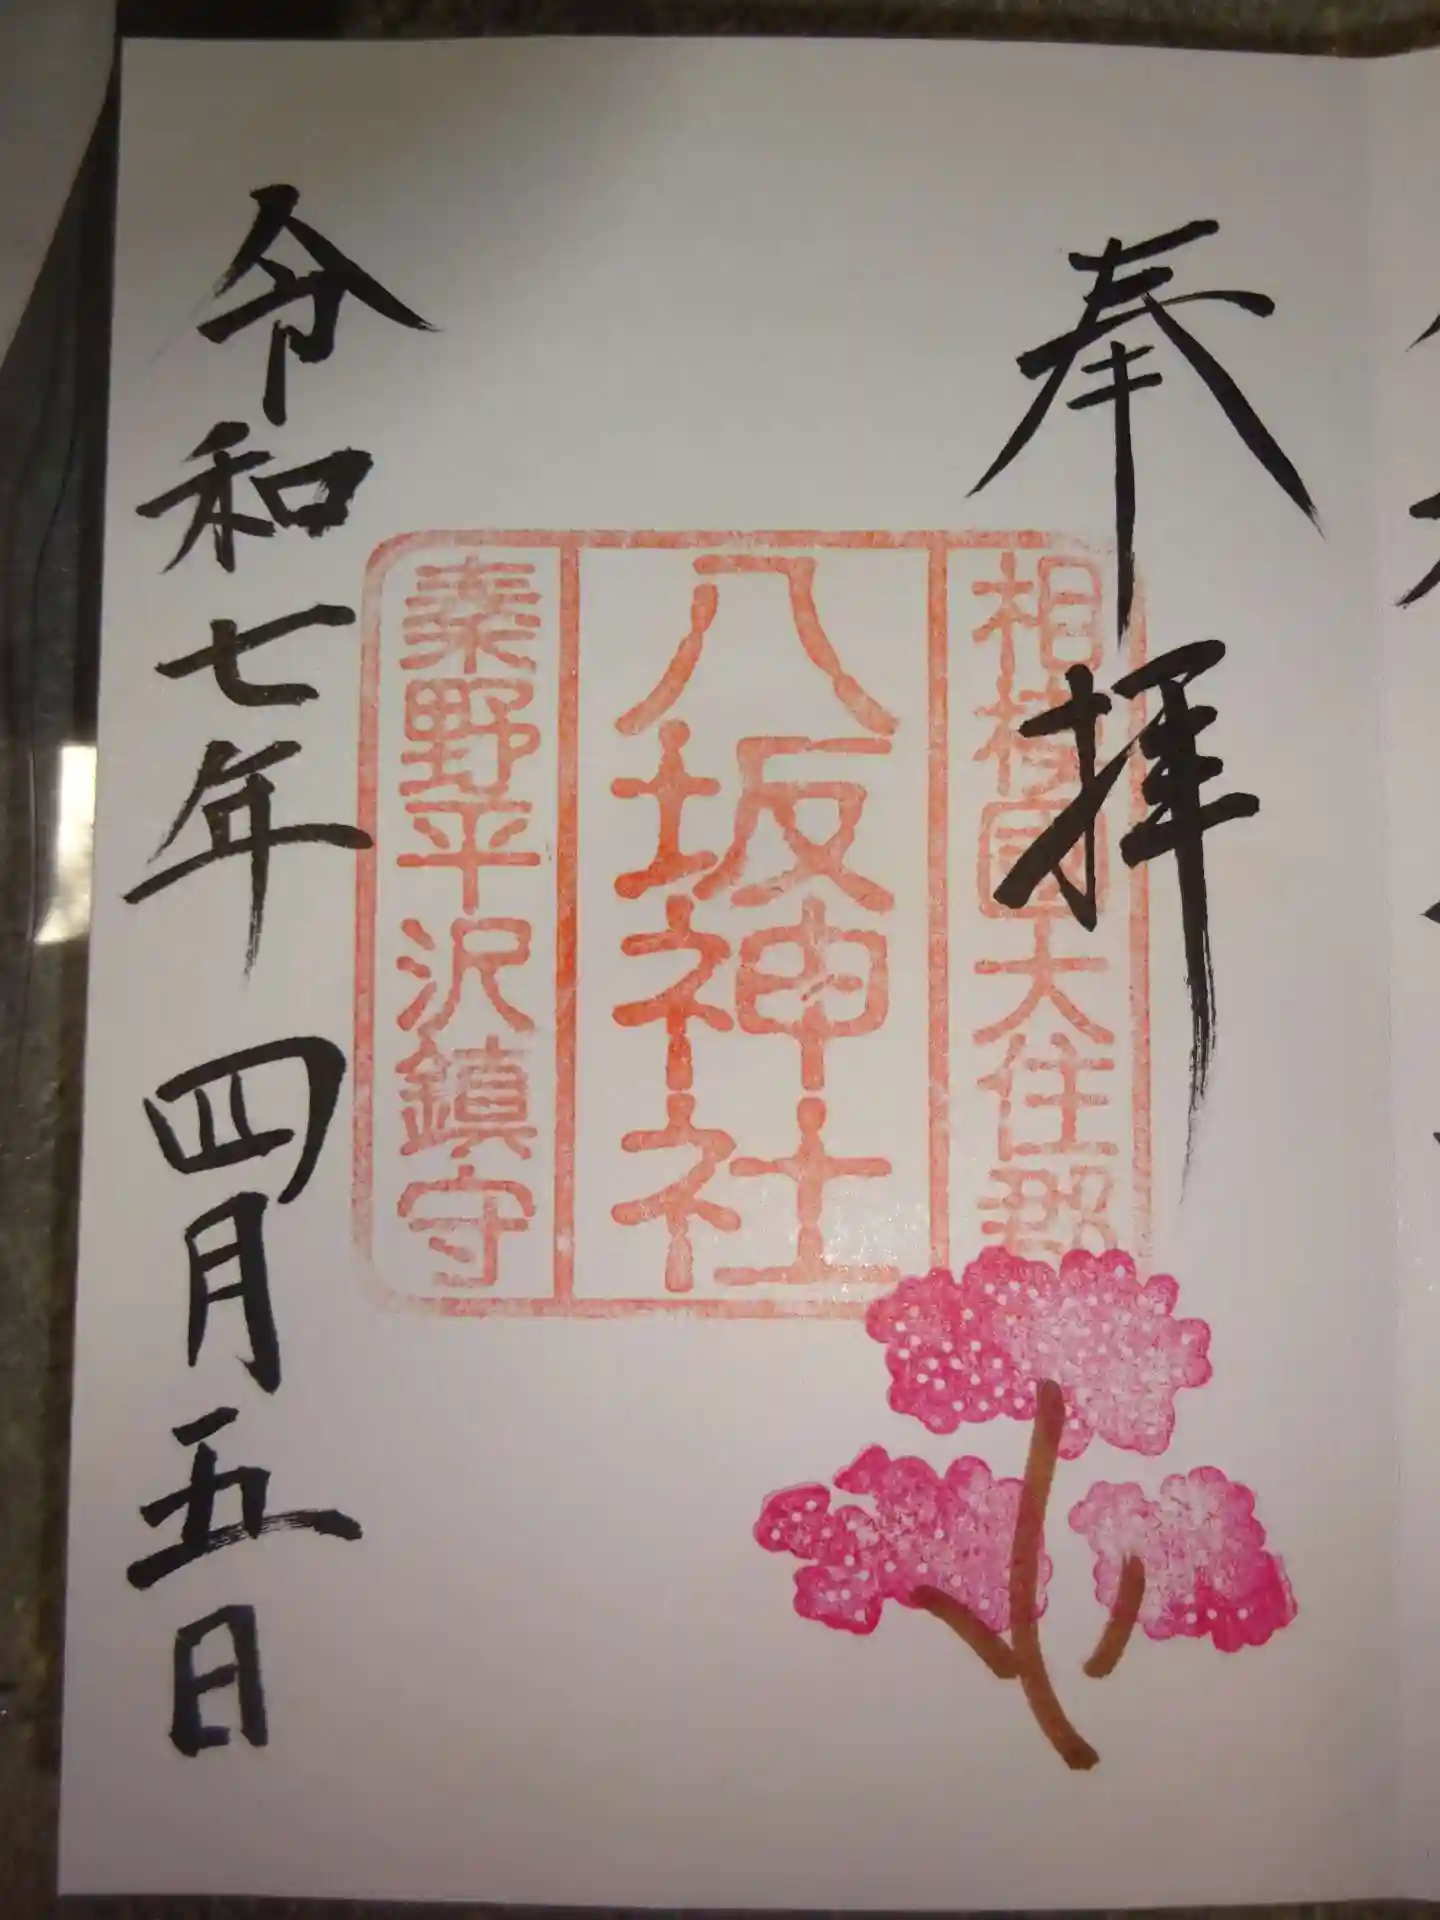 奉拝
相模國大住郡
八坂神社
秦野平沢鎮守
令和七年 四月五日